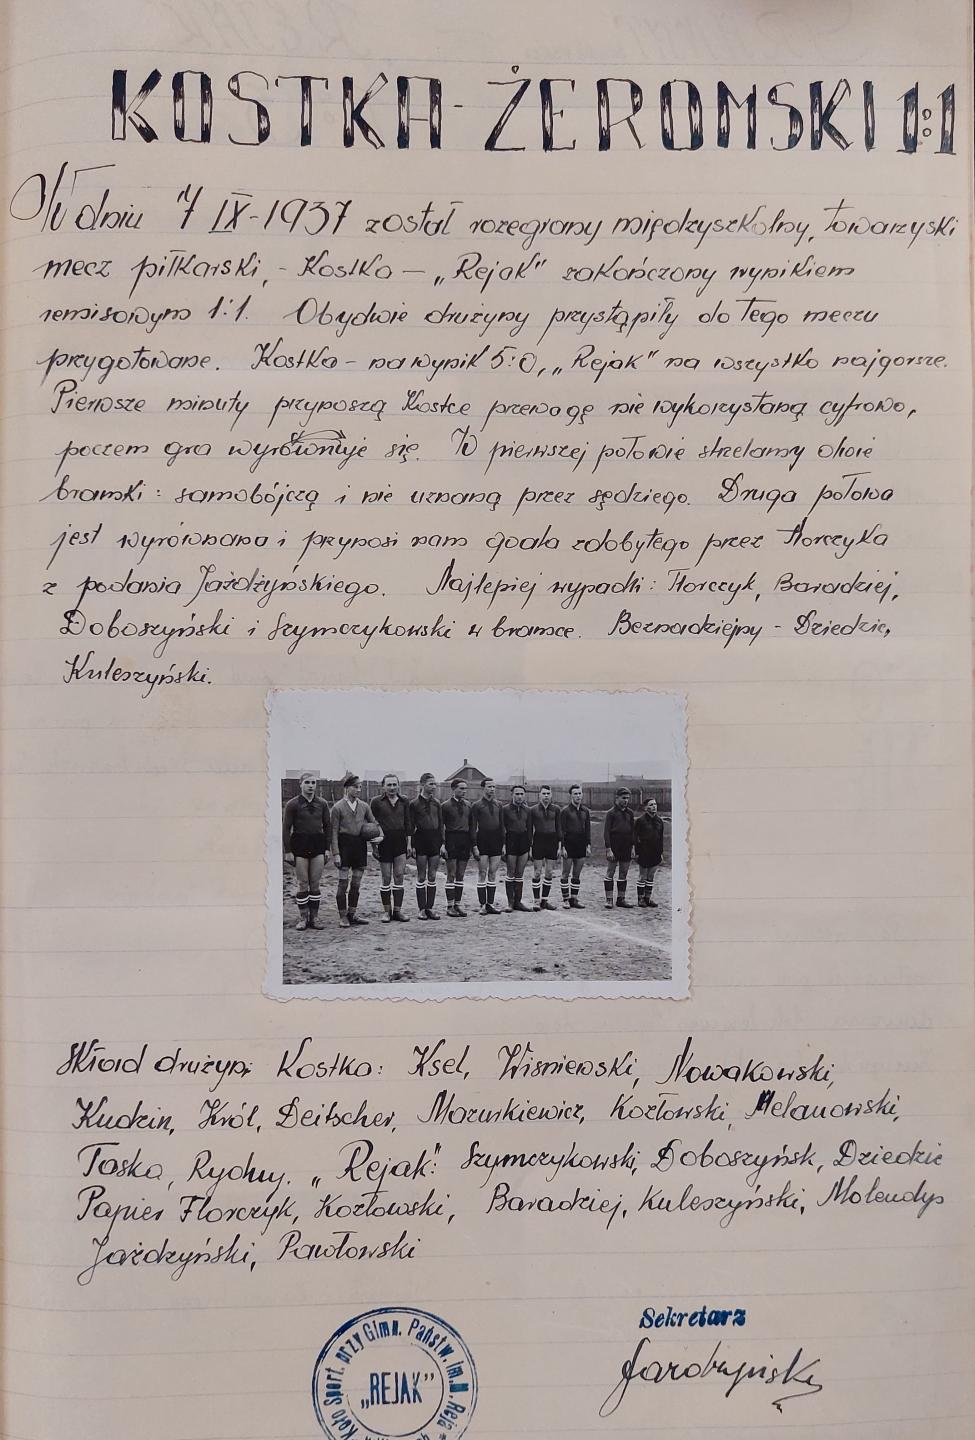 KOSTKA - ŻEROMSKI 1:1
W dniu 7 IX-1937 został rozegrany międzyszkolny, towarzyski
mecz piłkarski, - Kostka — „Rejak" zakończony wynikiem
remisowym 1:1. Obydwie drużyny przystąpiły do tego meczu
przygotowane. Kostka - na wynik 5:0, „Rejak" na wszystko najgorsze.
Pierwsze minuty przynoszą Kostce przewagę nie wykorzystaną cyfrowo,
poczem gra wyrównuje się. W pierwszej połowie strzelamy dwie
bramki: samobójczą i nie uznaną przez sędziego. Druga połowa
jest wyrównana i przynosi nam goala zdobytego przez Florczyka
z podania Jażdżyńskiego. Najlepiej wypadli: Florczyk, Baradziej,
Doboszyński i Szymczykowski w bramce. Beznadziejny - Dziedzic,
Kuleszyński.
Skład drużyn: Kostka: Ksel, Wiśniewski, Nowakowski,
Kudzin, Król, Deitscher, Mazurkiewicz, Kozłowski, Melanowski,
Taska, Rychuj. „Rejak": Szymczykowski, Doboszyńsk, Dziedzic
Papier Florczyk, Kozłowski, Baradziej, Kuleszyński, Molendys
Jażdzyński, Pawłowski
Sekretarz
Koło Sport. przy Gimn. Państw. im. M. Reja
„REJAK"